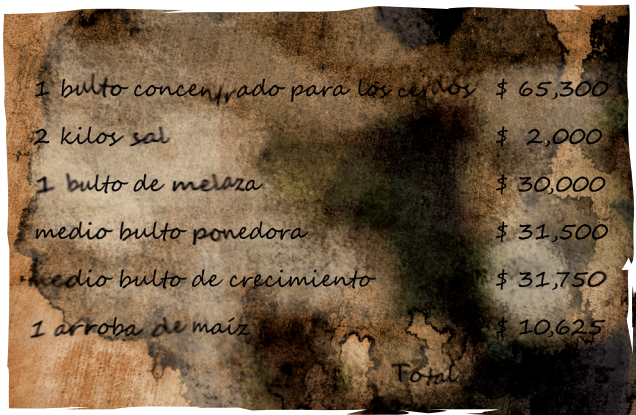 1 bulto concentrado para los cerdos $ 65,300
2 kilos sal $ 2,000
1 bulto de melaza $ 30,000
medio bulto ponedora $ 31,500
medio bulto de crecimiento $ 31,750
1 arroba de maíz $ 10,625
Total